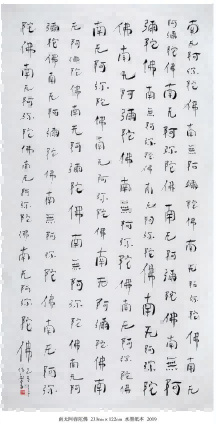 南无阿弥陀佛南无阿弥陀佛南无阿彌陀佛南无
阿彌陀佛南无阿弥陀佛南无阿彌陀佛南無阿
彌陀佛南無阿弥陀佛南无阿弥陀佛南无阿弥陀
佛南无阿彌陀佛南無阿弥陀佛南无阿弥陀佛
南无阿弥陀佛南无阿弥陀佛南无阿彌陀佛南
无阿弥陀佛南无阿彌陀佛南無阿弥陀佛南无阿
彌陀佛南无阿弥陀佛南无阿彌陀佛南无阿弥
陀佛南无阿弥陀佛南无阿弥陀佛南无阿弥陀佛
南无阿弥陀佛 238cm x 122cm 水墨纸本 2009